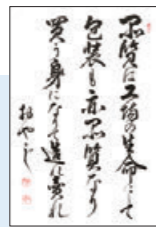 品質は工場の生命にして
包装も亦品質なり
買う身になって造り売れ
おやじ